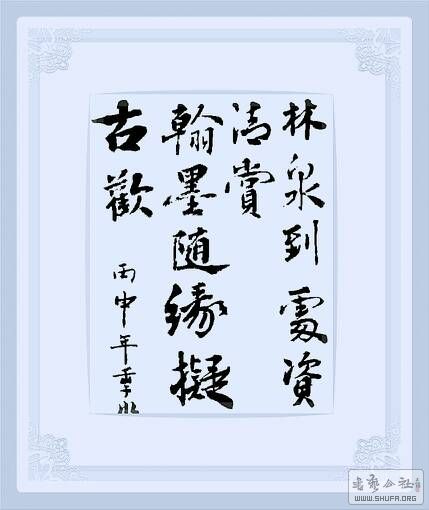 林泉到處資
清賞
翰墨隨緣擬
古歡
丙申年季
WWW.SHUFA.ORG